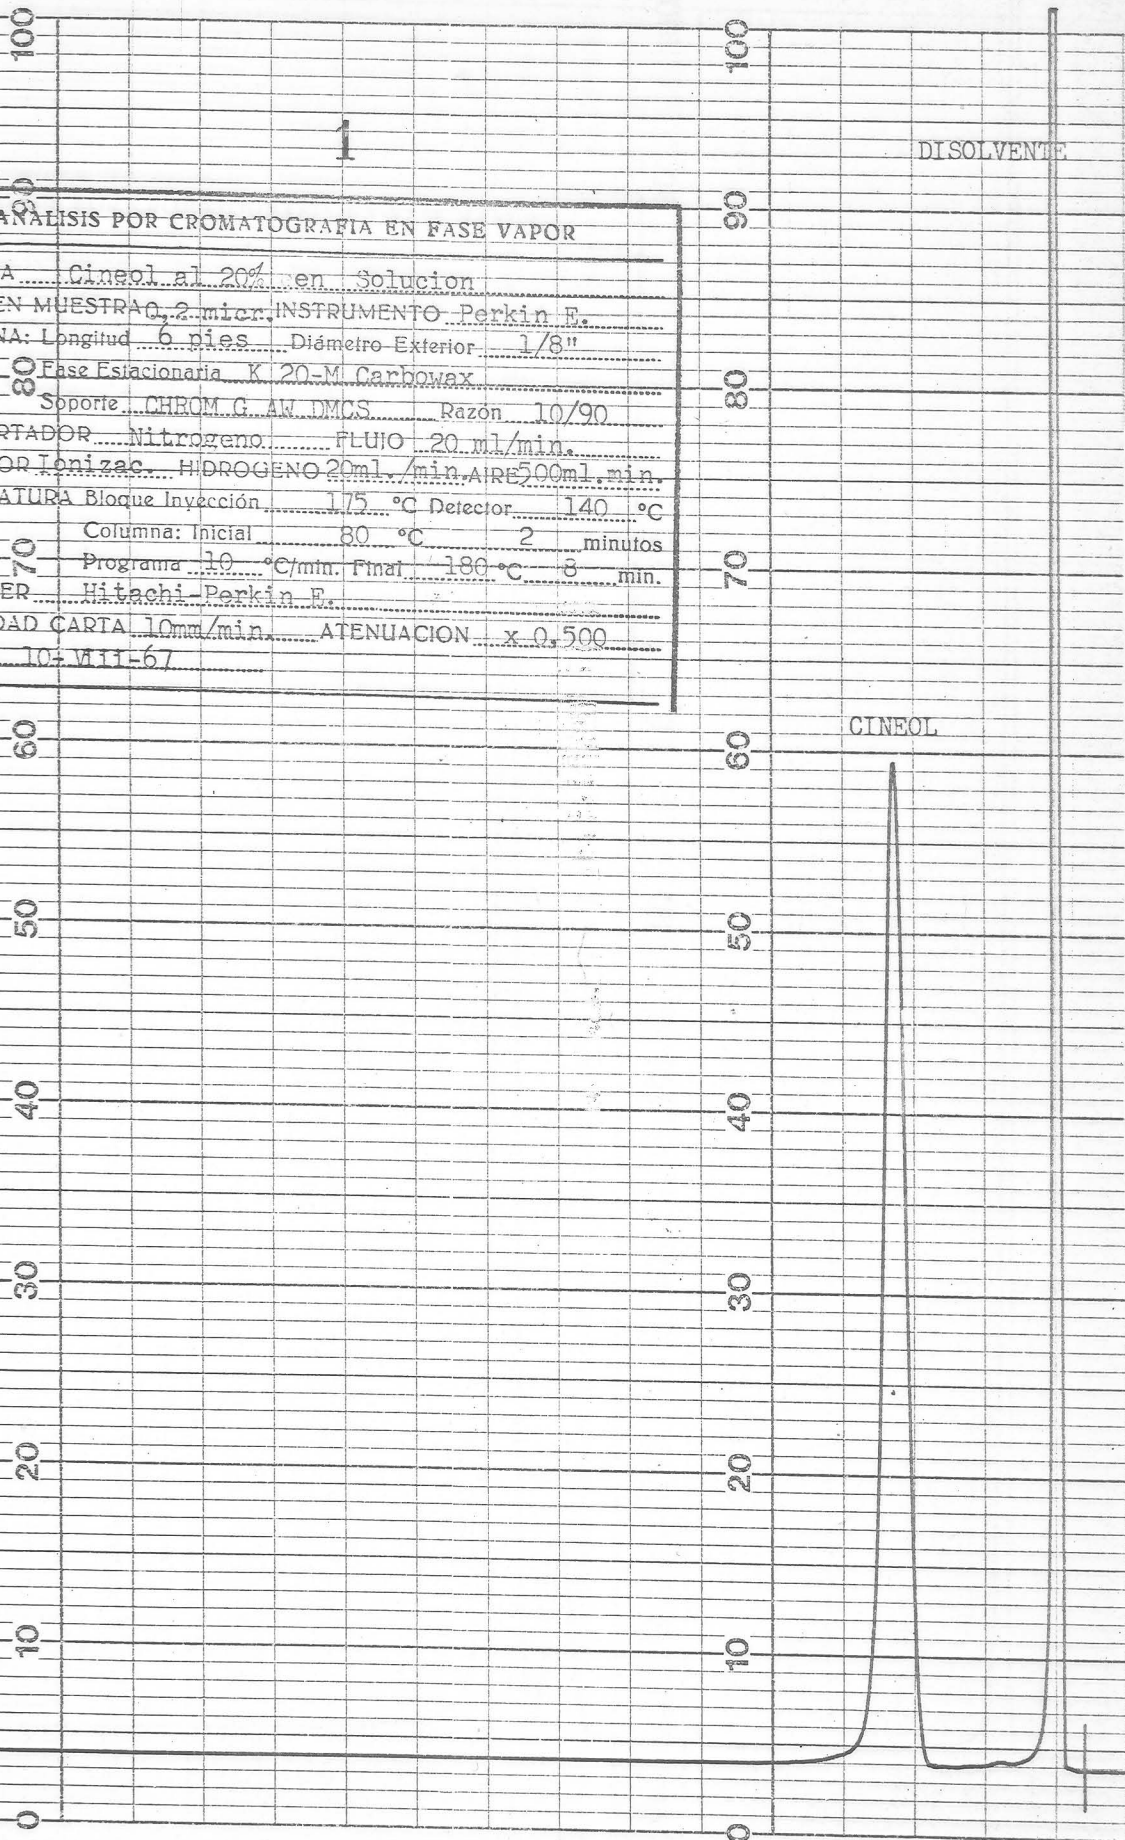 1
DISOLVENTE
ANALISIS POR CROMATOGRAFIA EN FASE VAPOR
A Cineol al 20% en Solucion
EN MUESTRA 0,2 micr. INSTRUMENTO Perkin E.
NA: Longitud 6 pies Diámetro Exterior 1/8"
Fase Estacionaria K 20-M Carbowax
Soporte CHROM G AW DMCS Razón 10/90
RTADOR Nitrogeno FLUJO 20 ml/min.
OR Ionizac. HIDROGENO 20ml./min. AIRE 500ml.min.
ATURA Bloque Inyección 175 °C Detector 140 °C
Columna: Inicial 80 °C 2 minutos
Programa 10 °C/min. Final 180 °C 8 min.
ER Hitachi-Perkin E.
DAD CARTA 10mm/min. ATENUACION x 0,500
10-VIII-67
CINEOL
100 100
90 90
80 80
70 70
60 60
50 50
40 40
30 30
20 20
10 10
0 0